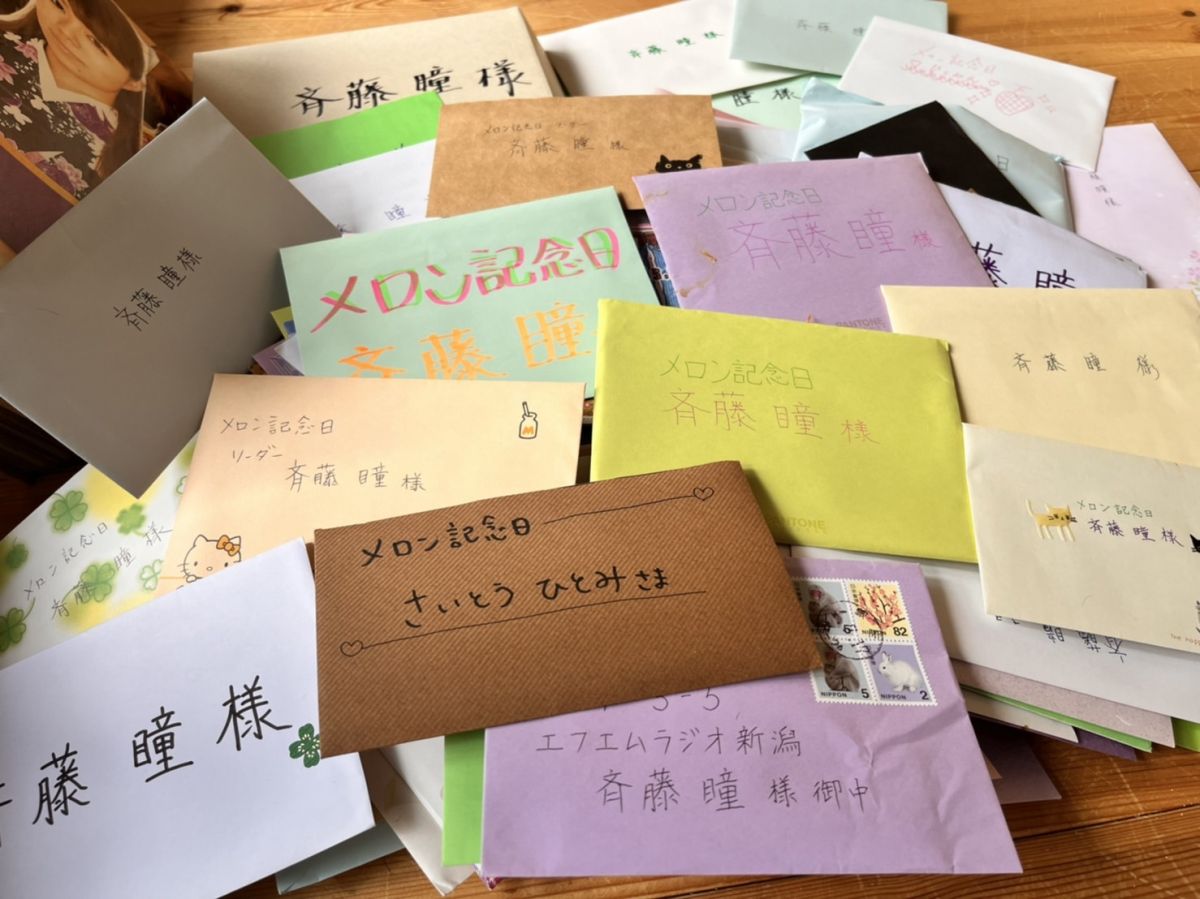 斉藤瞳様
斉藤瞳様
斉藤瞳
メロン記念日
瞳様
メロン記念日 リーダー
斉藤瞳様
瞳
メロン記念日
斉藤瞳様
PANTONE
瞳様
斉藤瞳様
メロン記念日
斉藤瞳
斉藤瞳様
メロン記念日
斉藤瞳様
PANTONE
メロン記念日
リーダー
斉藤瞳様
メロン記念日
斉藤瞳様
メロン記念日
斉藤瞳様
メロン記念日
さいとう ひとみさま
藤瞳様
82
NIPPON
NIPPON 5
NIPPON 2
エフエムラジオ新潟
斉藤瞳様御中